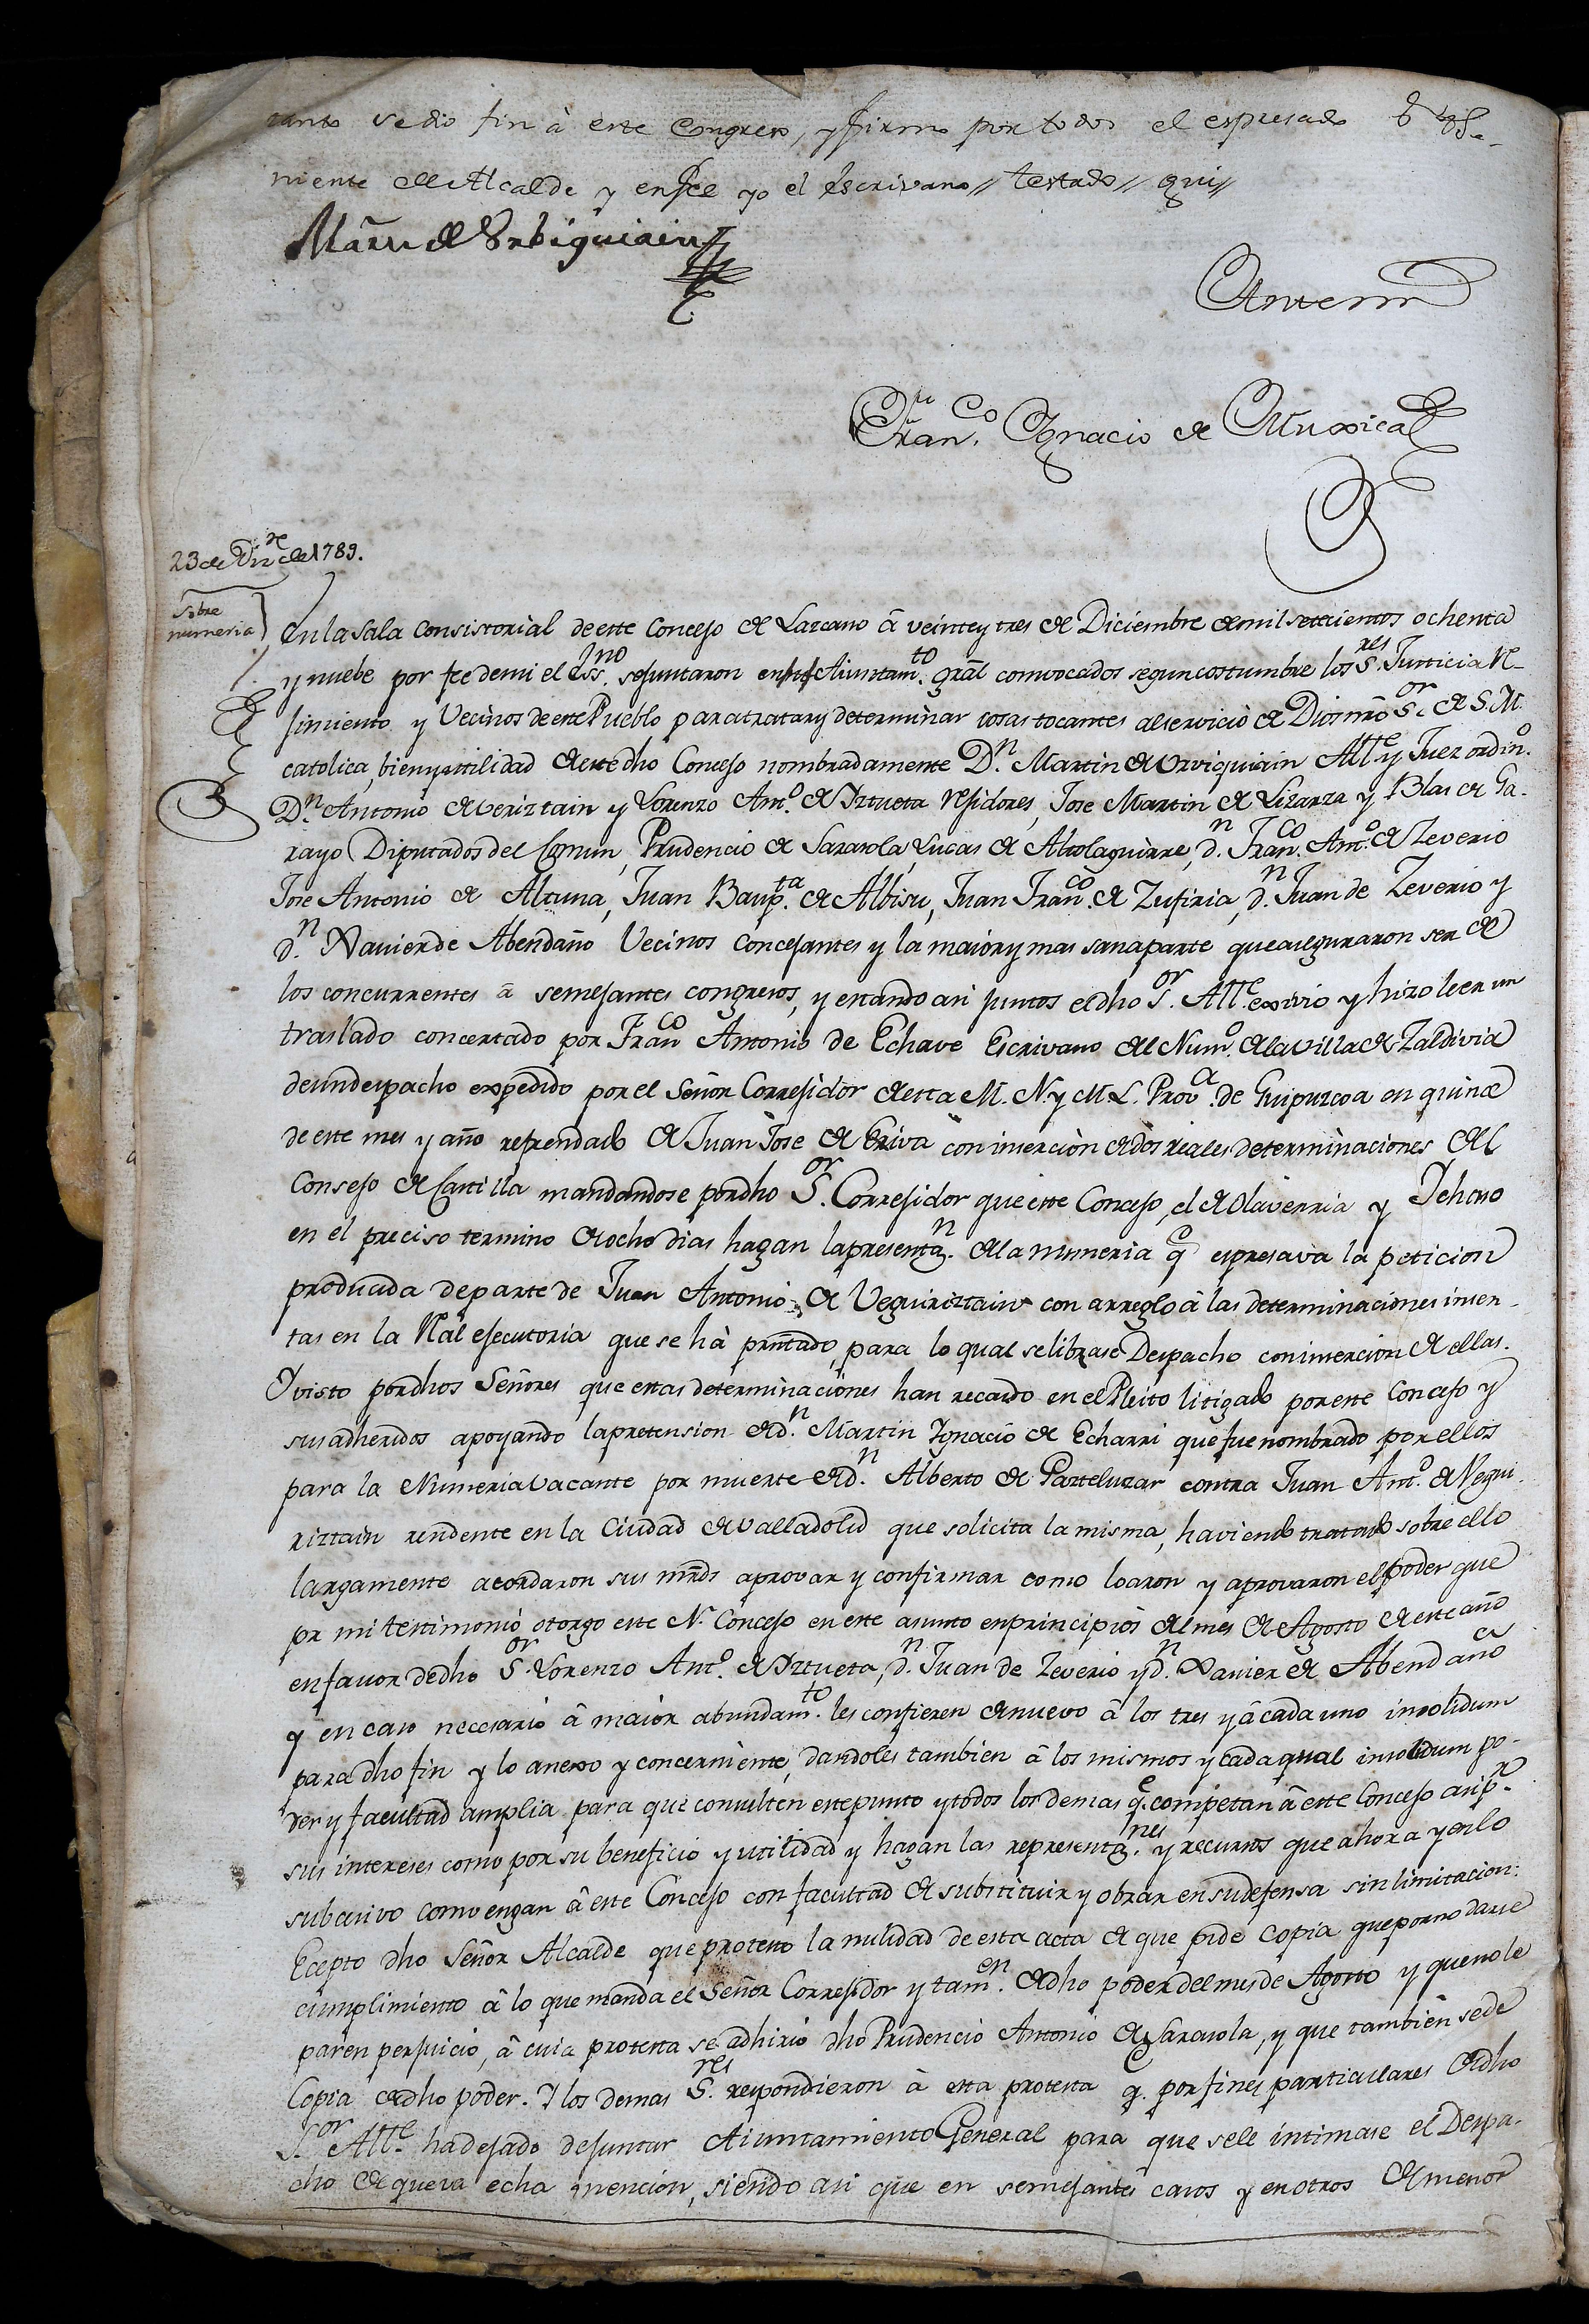 tanto se dio fin â este Congreso, y firmo por todos el espresado
niente de Alcalde y en fee yo el escrivano // testado // qui //
Manuel Urbiquiain
Ante mi
Fran.co Ignacio de Muxica
23 de Diz.re de 1789.
Sobre
numeria
En la sala Consistorial de este Concejo de Lazcano â veinte y tres de Diciembre de mil setecientos ochenta
y nuebe por fee de mi el Ess.no se juntaron en Aiuntam.to grãl comvocados segun costumbre los S.res Justicia Re-
jimiento y Vecinos de este Pueblo para tratar y determinar cosas tocantes al servicio de Dios nrõ S.or de S. M.
catolica, bien y utilidad de este dho Concejo nombradamente D.n Martin de Urviquiain All.e y Juez ordin.o
D.n Antonio de Veriztain y Lorenzo Ant.o de Yztueta Rejidores, Jose Martin de Lizarza y Blas de Ga-
rayo Diputados del Comun, Prudencio de Sarasola, Lucas de Altolaguirre, d.n Fran.co Ant.o de Zeverio
Jose Antonio de Altuna, Juan Baup.ta de Albisu, Juan Fran.co de Zufiria, d.n Juan de Zeverio y
d.n Xavier de Abendaño Vecinos Concejantes y la maior y mas sana parte que aseguraron ser de
los concurrentes â semejantes congresos, y estando asi juntos el dho S.or All.e exivio y hizo leer un
traslado concertado por Fran.co Antonio de Echave Escrivano del Num.o de la villa de Zaldivia
de un despacho expedido por el Señor Correjidor de esta M. N. y M. L. Prov.a de Guipuzcoa en quince
de este mes y año refrendado de Juan Jose de Eriva con insercion de dos reales determinaciones del
Consejo de Castilla mandandose por dho S.or Correjidor que este Concejo, el de Olaverria y Ychaso
en el preciso termino de ocho dias hagan la presentaz.n de la numeria q.e espresava la peticion
producida de parte de Juan Antonio de Veguiriztain con arreglo â las determinaciones inser-
tas en la Rãl ejecutoria que se hà prntado, para lo qual se librase Despacho con insercion de ellas.
Y visto por dhos Señores que estas determinaciones han recaido en el Pleito litigado por este Concejo y
sus adheridos apoyando la pretension de d.n Martin Ygnacio de Echarri que fue nombrado por ellos
para la Numeria vacante por muerte de d.n Alberto de Parteluzar contra Juan Ant.o de Vegui-
riztain residente en la Ciudad de Valladolid que solicita la misma, haviendo tratado sobre ello
largamente acordaron sus mrds aprovar y confirmar como loaron y aprovaron el poder que
pr mi testimonio otorgo este N. Concejo en este asunto en principios del mes de Agosto de este año
en favor de dho S.or Lorenzo Ant.o de Yztueta, d.n Juan de Zeverio y d.n Xavier de Abendaño
y en caso necesario â maior abundam.to les confieren de nuevo â los tres y â cada uno insolidum
para dho fin y lo anexo y concerniente, dandoles tambien â los mismos y cada qual insolidum po-
der y facultad amplia para que consulten este punto y todos los demas q.e competan â este Concejo asi p.r
sus intereses como por su beneficio y utilidad y hagan las representaz.nes y recursos que ahora y en lo
subcesivo comvengan â este Concejo con facultad de substituir y obrar en su defensa sin limitacion:
Ecepto dho Señor Alcalde que protesto la nulidad de esta acta de que pide copia que por no darse
cumplimiento â lo que manda el Señor Correjidor y tam.en de dho poder del mes de Agosto y que no le
paren perjuicio, â cuia protesta se adhirio dho Prudencio Antonio de Sarasola, y que tambien se de
Copia de dho poder. Y los demas S.res respondieron â esta protesta q. por fines particulares de dho
S.or All.e ha dejado de juntar Aiuntamiento General para que se le intimase el Despa-
cho de que va echa mencion, siendo asi que en semejantes casos y en otros de menor